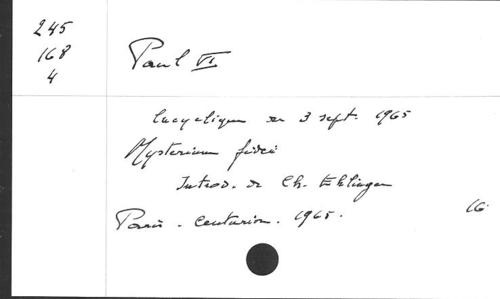 245
168
4
Paul VI
Encyclique du 3 sept. 1965
Mysterium fidei
Introd. de Ch. Ehlinger
Paris - Centurion. 1965.
16